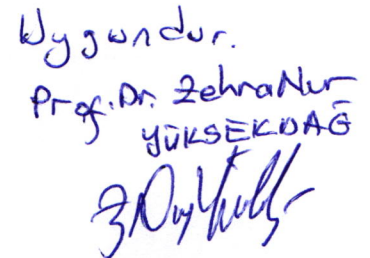 Uygundur.
Prof. Dr. Zehra Nur
YÜKSEKDAĞ